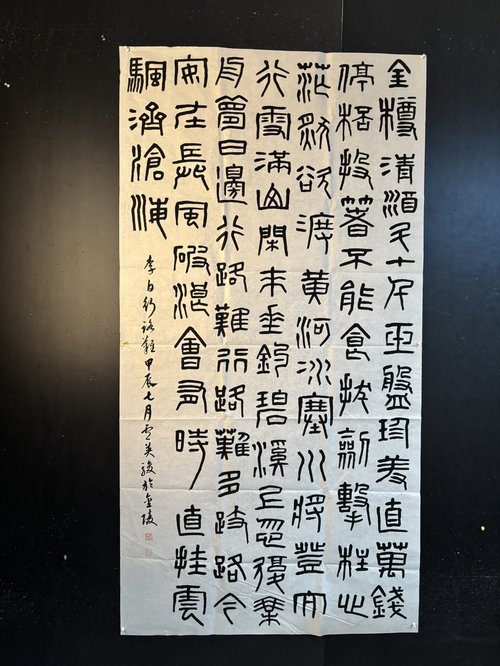 金樽清酒斗十千玉盤珍羞直萬錢
停杯投箸不能食拔劍擊柱心
茫然欲渡黃河冰塞川將登太
行雪滿山閑來垂釣碧溪上忽復乘
舟夢日邊行路難行路難多歧路今
安在長風破浪會有時直挂雲
帆濟滄海
李白行路難甲辰七月於金陵